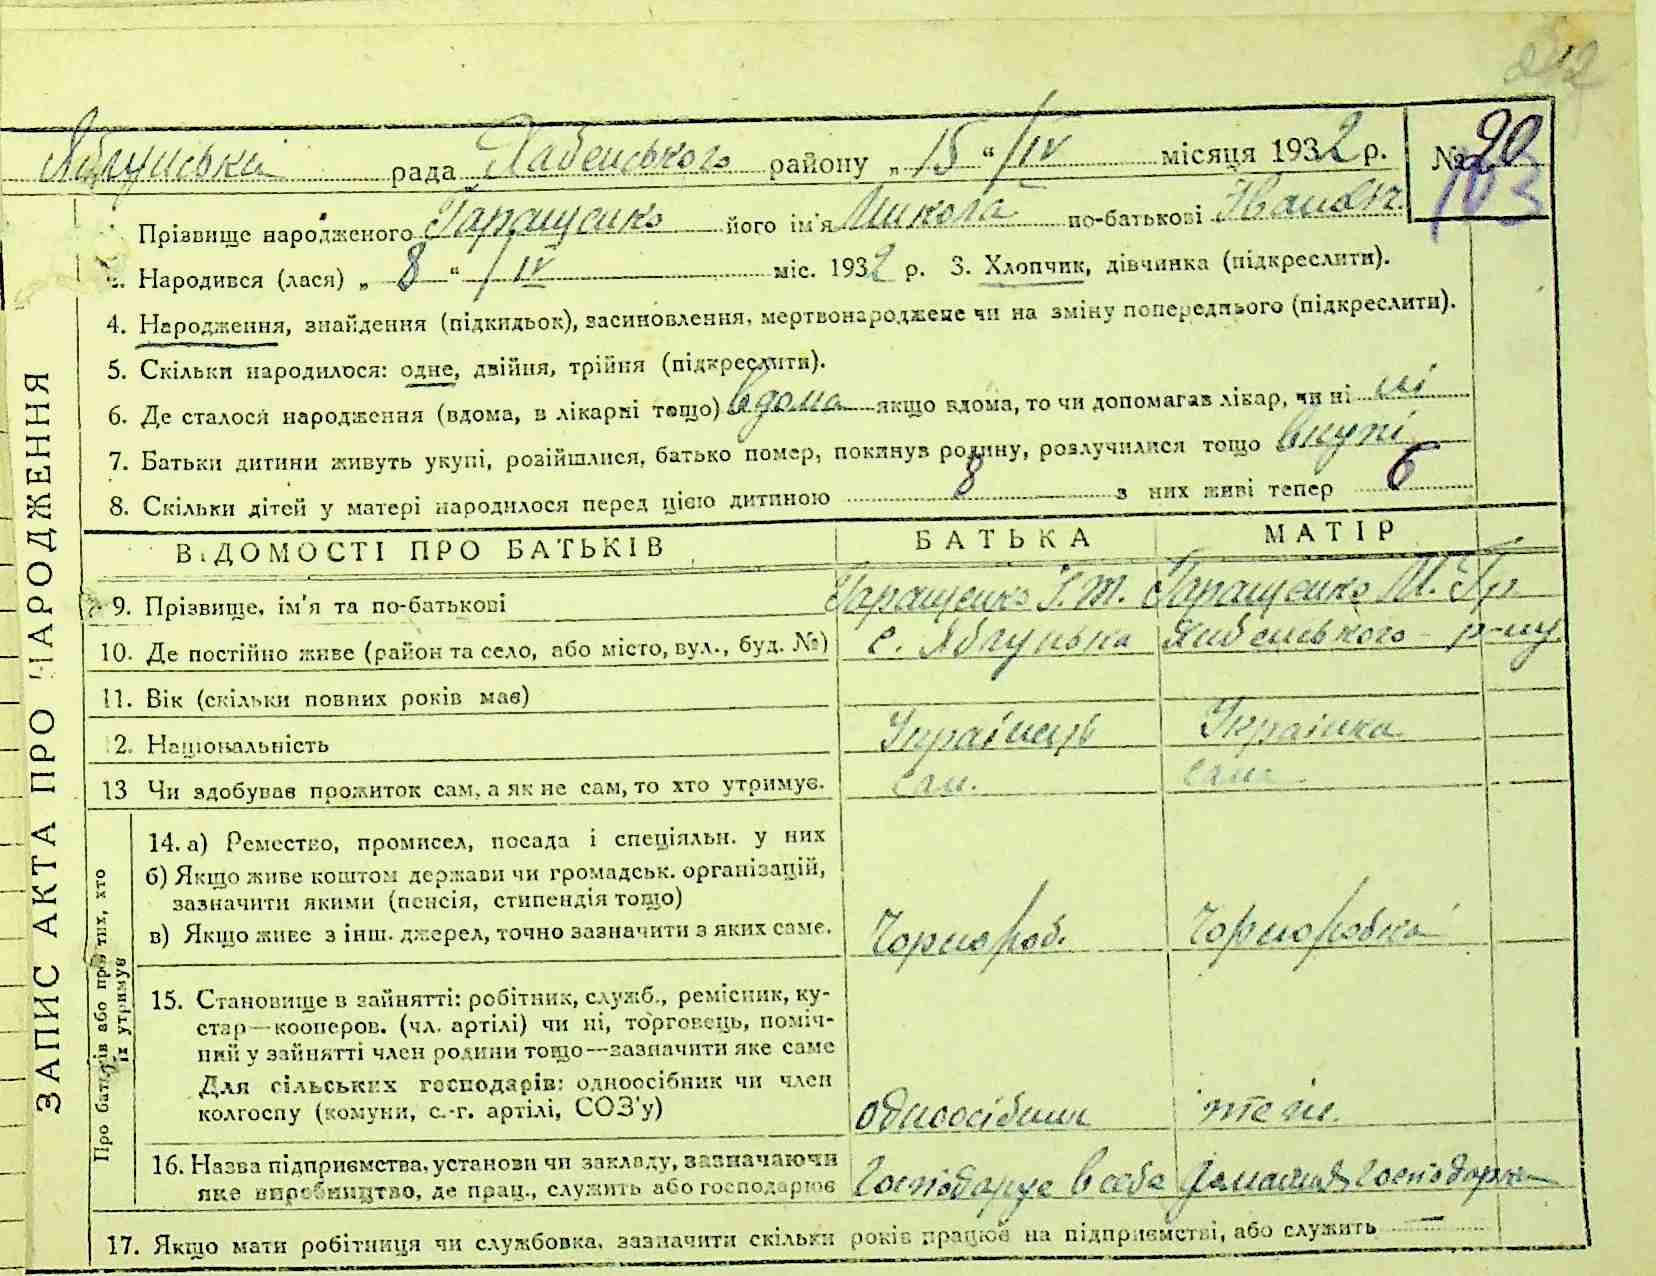 242
Яблунська рада Бабенського району „15“/IV місяця 1932 р. № 20
103
Прізвище народженого Гаращенко його ім'я Микола по-батькові Іванов.
2. Народився (лася) „8“ /IV міс. 1932 р. 3. Хлопчик, дівчинка (підкреслити).
4. Народження, знайдення (підкидьок), засиновлення, мертвонароджене чи на зміну попереднього (підкреслити).
5. Скільки народилося: одне, двійня, трійня (підкреслити).
6. Де сталося народження (вдома, в лікарні тощо) вдома якщо вдома, то чи допомагав лікар, чи ні ні
7. Батьки дитини живуть укупі, розійшлися, батько помер, покинув родину, розлучилися тощо вкупі
8. Скільки дітей у матері народилося перед цією дитиною 8 з них живі тепер 6
ВІДОМОСТІ ПРО БАТЬКІВ БАТЬКА МАТІР
9. Прізвище, ім'я та по-батькові Гаращенко І. Т. Гаращенко М. Гр.
10. Де постійно живе (район та село, або місто, вул., буд. №) с. Яблунька Бабенського р-ну
11. Вік (скільки повних років має)
12. Національність Українець Українка
13 Чи здобуває прожиток сам, а як не сам, то хто утримує. сам. сама
14. а) Ремество, промисел, посада і спеціяльн. у них
б) Якщо живе коштом держави чи громадськ. організацій,
зазначити якими (пенсія, стипендія тощо)
в) Якщо живе з інш. джерел, точно зазначити з яких саме. Чорнороб. Чорноробка
15. Становище в зайнятті: робітник, служб., ремісник, ку-
стар—кооперов. (чл. артілі) чи ні, торговець, поміч-
ний у зайнятті член родини тощо—зазначити яке саме
Для сільських господарів: одноосібник чи член
колгоспу (комуни, с.-г. артілі, СОЗ'у) одноосібник теж.
16. Назва підприємства, установи чи закладу, зазначаючи
яке виробництво, де прац., служить або господарює Господарює в себе домашня господарка
17. Якщо мати робітниця чи службовка, зазначити скільки років працює на підприємстві, або служить —
ЗАПИС АКТА ПРО НАРОДЖЕННЯ
Про батьків або про тих, хто
їх утримує